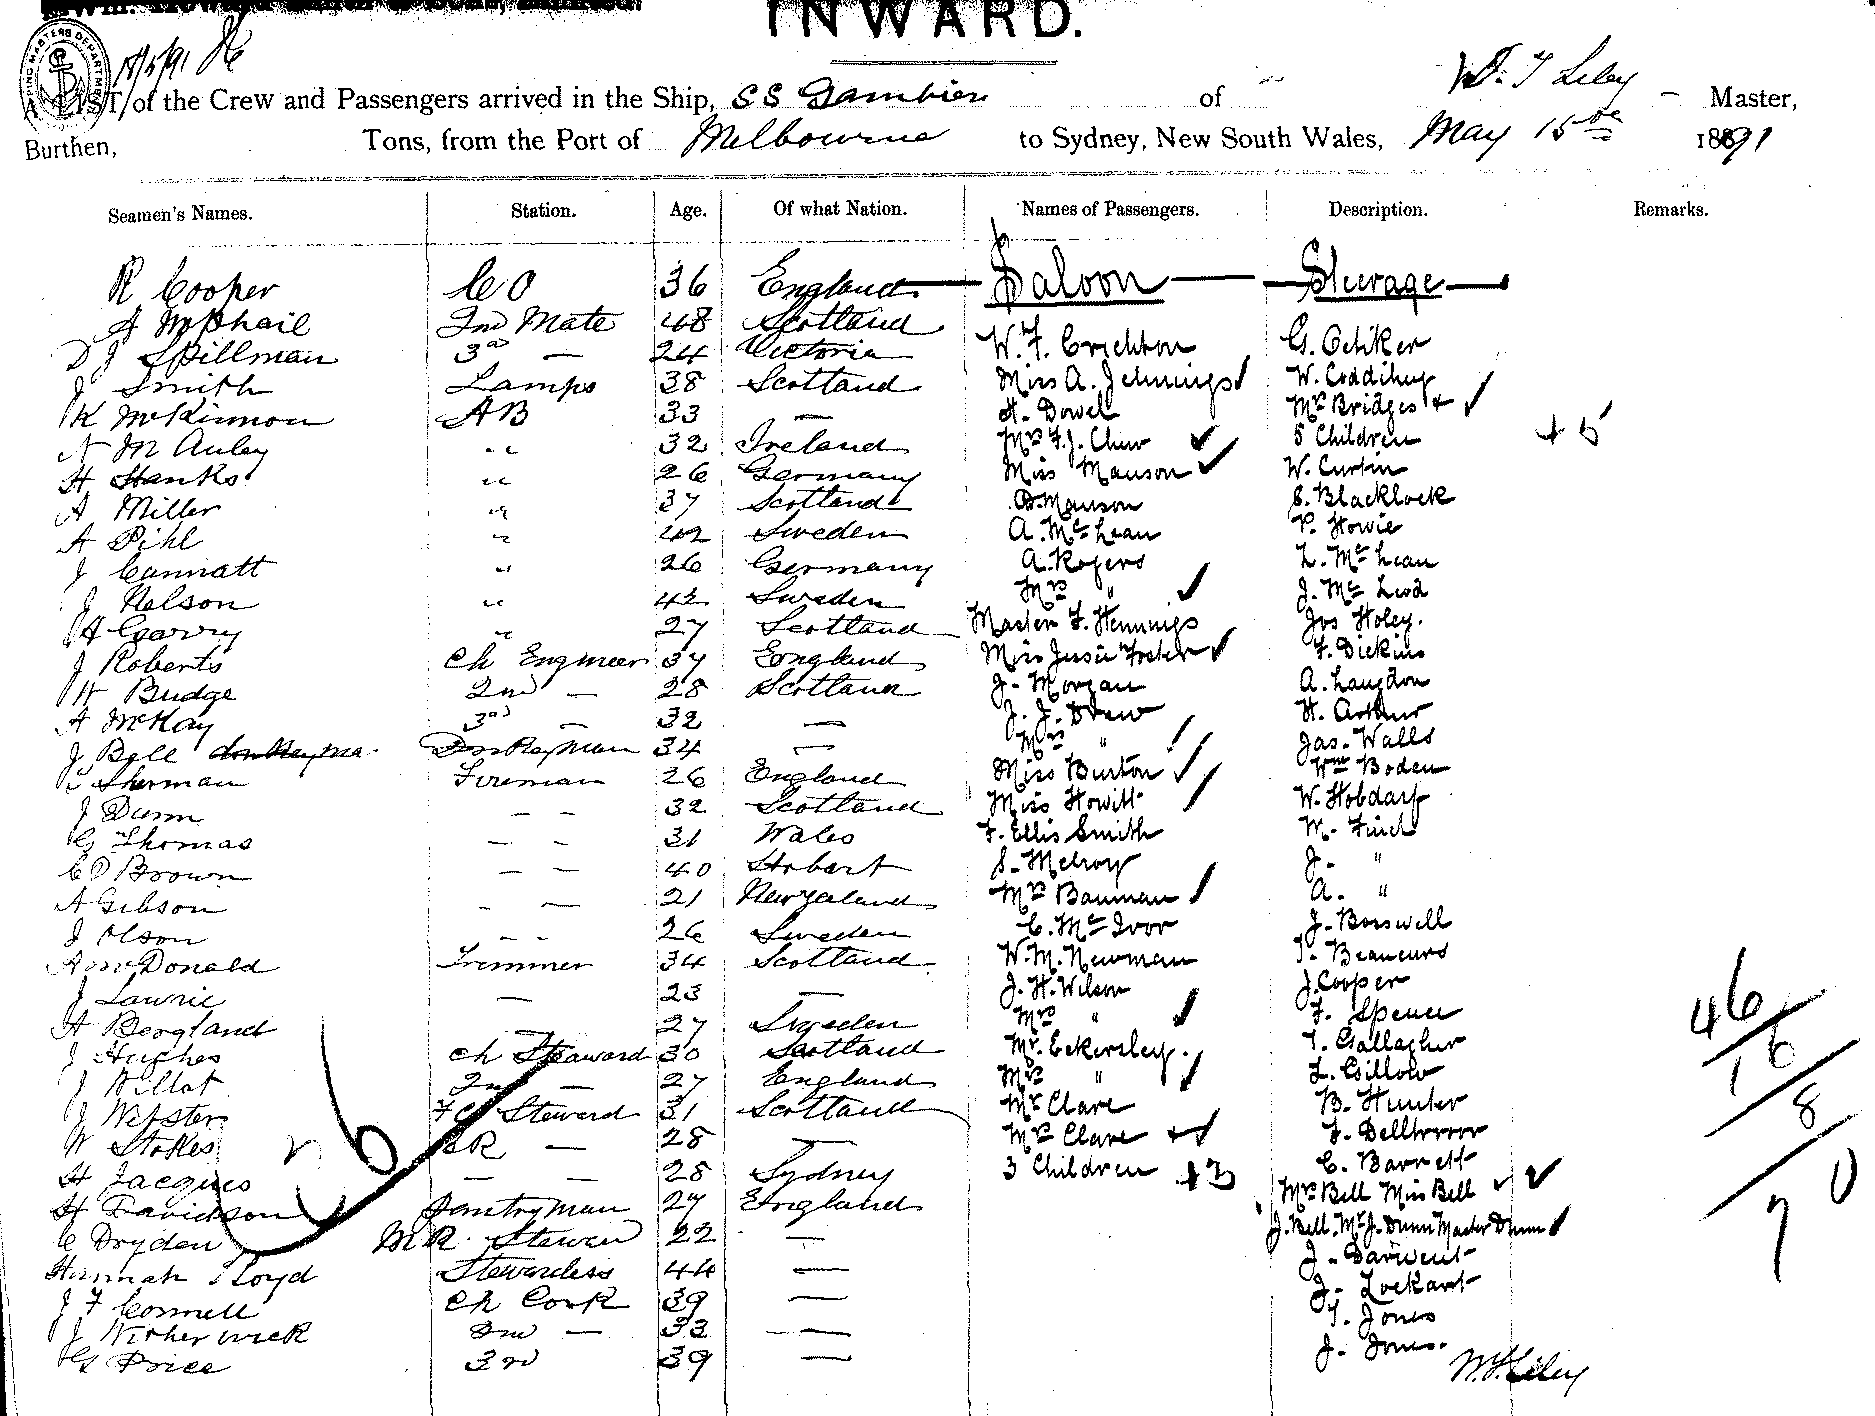 INWARD.
18/5/91
A LIST of the Crew and Passengers arrived in the Ship, SS Gambier of W. T Lelly Master,
Burthen, Tons, from the Port of Melbourne to Sydney, New South Wales, May 15th 1891
Seamen's Names. Station. Age. Of what Nation. Names of Passengers. Description. Remarks.
R Cooper CO 36 England Saloon Steerage
A McPhail 2nd Mate 48 Scotland
D J Spillman 3rd — 24 Victoria W. F. Crichton G. Oetiker
J Smith Lamps 38 Scotland Miss A. Jennings W. Coddihy
K McKinnon AB 33 — H. Dowel Mrs Bridges +
N McAuley " 32 Ireland Mrs F. J. Chew 5 Children + 5
H Hanks " 26 Germany Miss Manson W. Curtin
A Miller " 37 Scotland D. Manson S. Blacklock
A Pihl " 42 Sweden A. McLean P. Howie
J Cannatt " 26 Germany A. Rogers L. McLean
J Nelson " 42 Sweden Mrs " J. McLeod
H Garvy " 27 Scotland Master F. Hennings Jos Holey.
J Roberts Ch Engineer 37 England Miss Jessie Foster F. Dickins
W Budge 2nd — 28 Scotland J. Morgan A. Langdon
A McKay 3rd — 32 — J. J. Drew H. Arthur
J Bell donkeyma Donkeyman 34 — Mrs " Jas. Walls
R Sherman Fireman 26 England Miss Burton Wm Boden
J Dunn — — 32 Scotland Miss Howitt W. Hobday
G Thomas — — 31 Wales F. Ellis Smith M. Finch
C D Brown — — 40 Hobart S. Melroy J. "
A Gibson — — 21 New Zealand Mrs Bauman A. "
J Olson — — 26 Sweden C. McIvor J. Boswell
A McDonald Trimmer 34 Scotland W. M. Newman
J Lawrie — 23 — J. H. Wilson J. Cooper
A Bergland 27 Sweden Mrs " F. Spence
J Hughes Ch Steaward 30 Scotland Mr. Eckersley. T. Gallagher
J Willot 2nd — 27 England Mrs " L. Gillow
J Webster F C Steward 31 Scotland Mr Clare B. Hunter
W Stokes SR — 28 — Mrs Clare +
H Jacques — — 28 Sydney 3 Children + 3 C. Barnett
H Davidson Pantryman 27 England Mrs Bell Miss Bell
C Dryden MR. Stewar 22 — J. Bell. Mr J. Dunn Master Dunn
Hannah Lloyd Stewardess 44 — J. Darwent
J F Connell Ch Cook 39 — J. Lockart
J Witherwick 2nd — 33 — T. Jones
G Price 3rd 39 — J. Jones.
W. T. Lelly
46
16
8
70